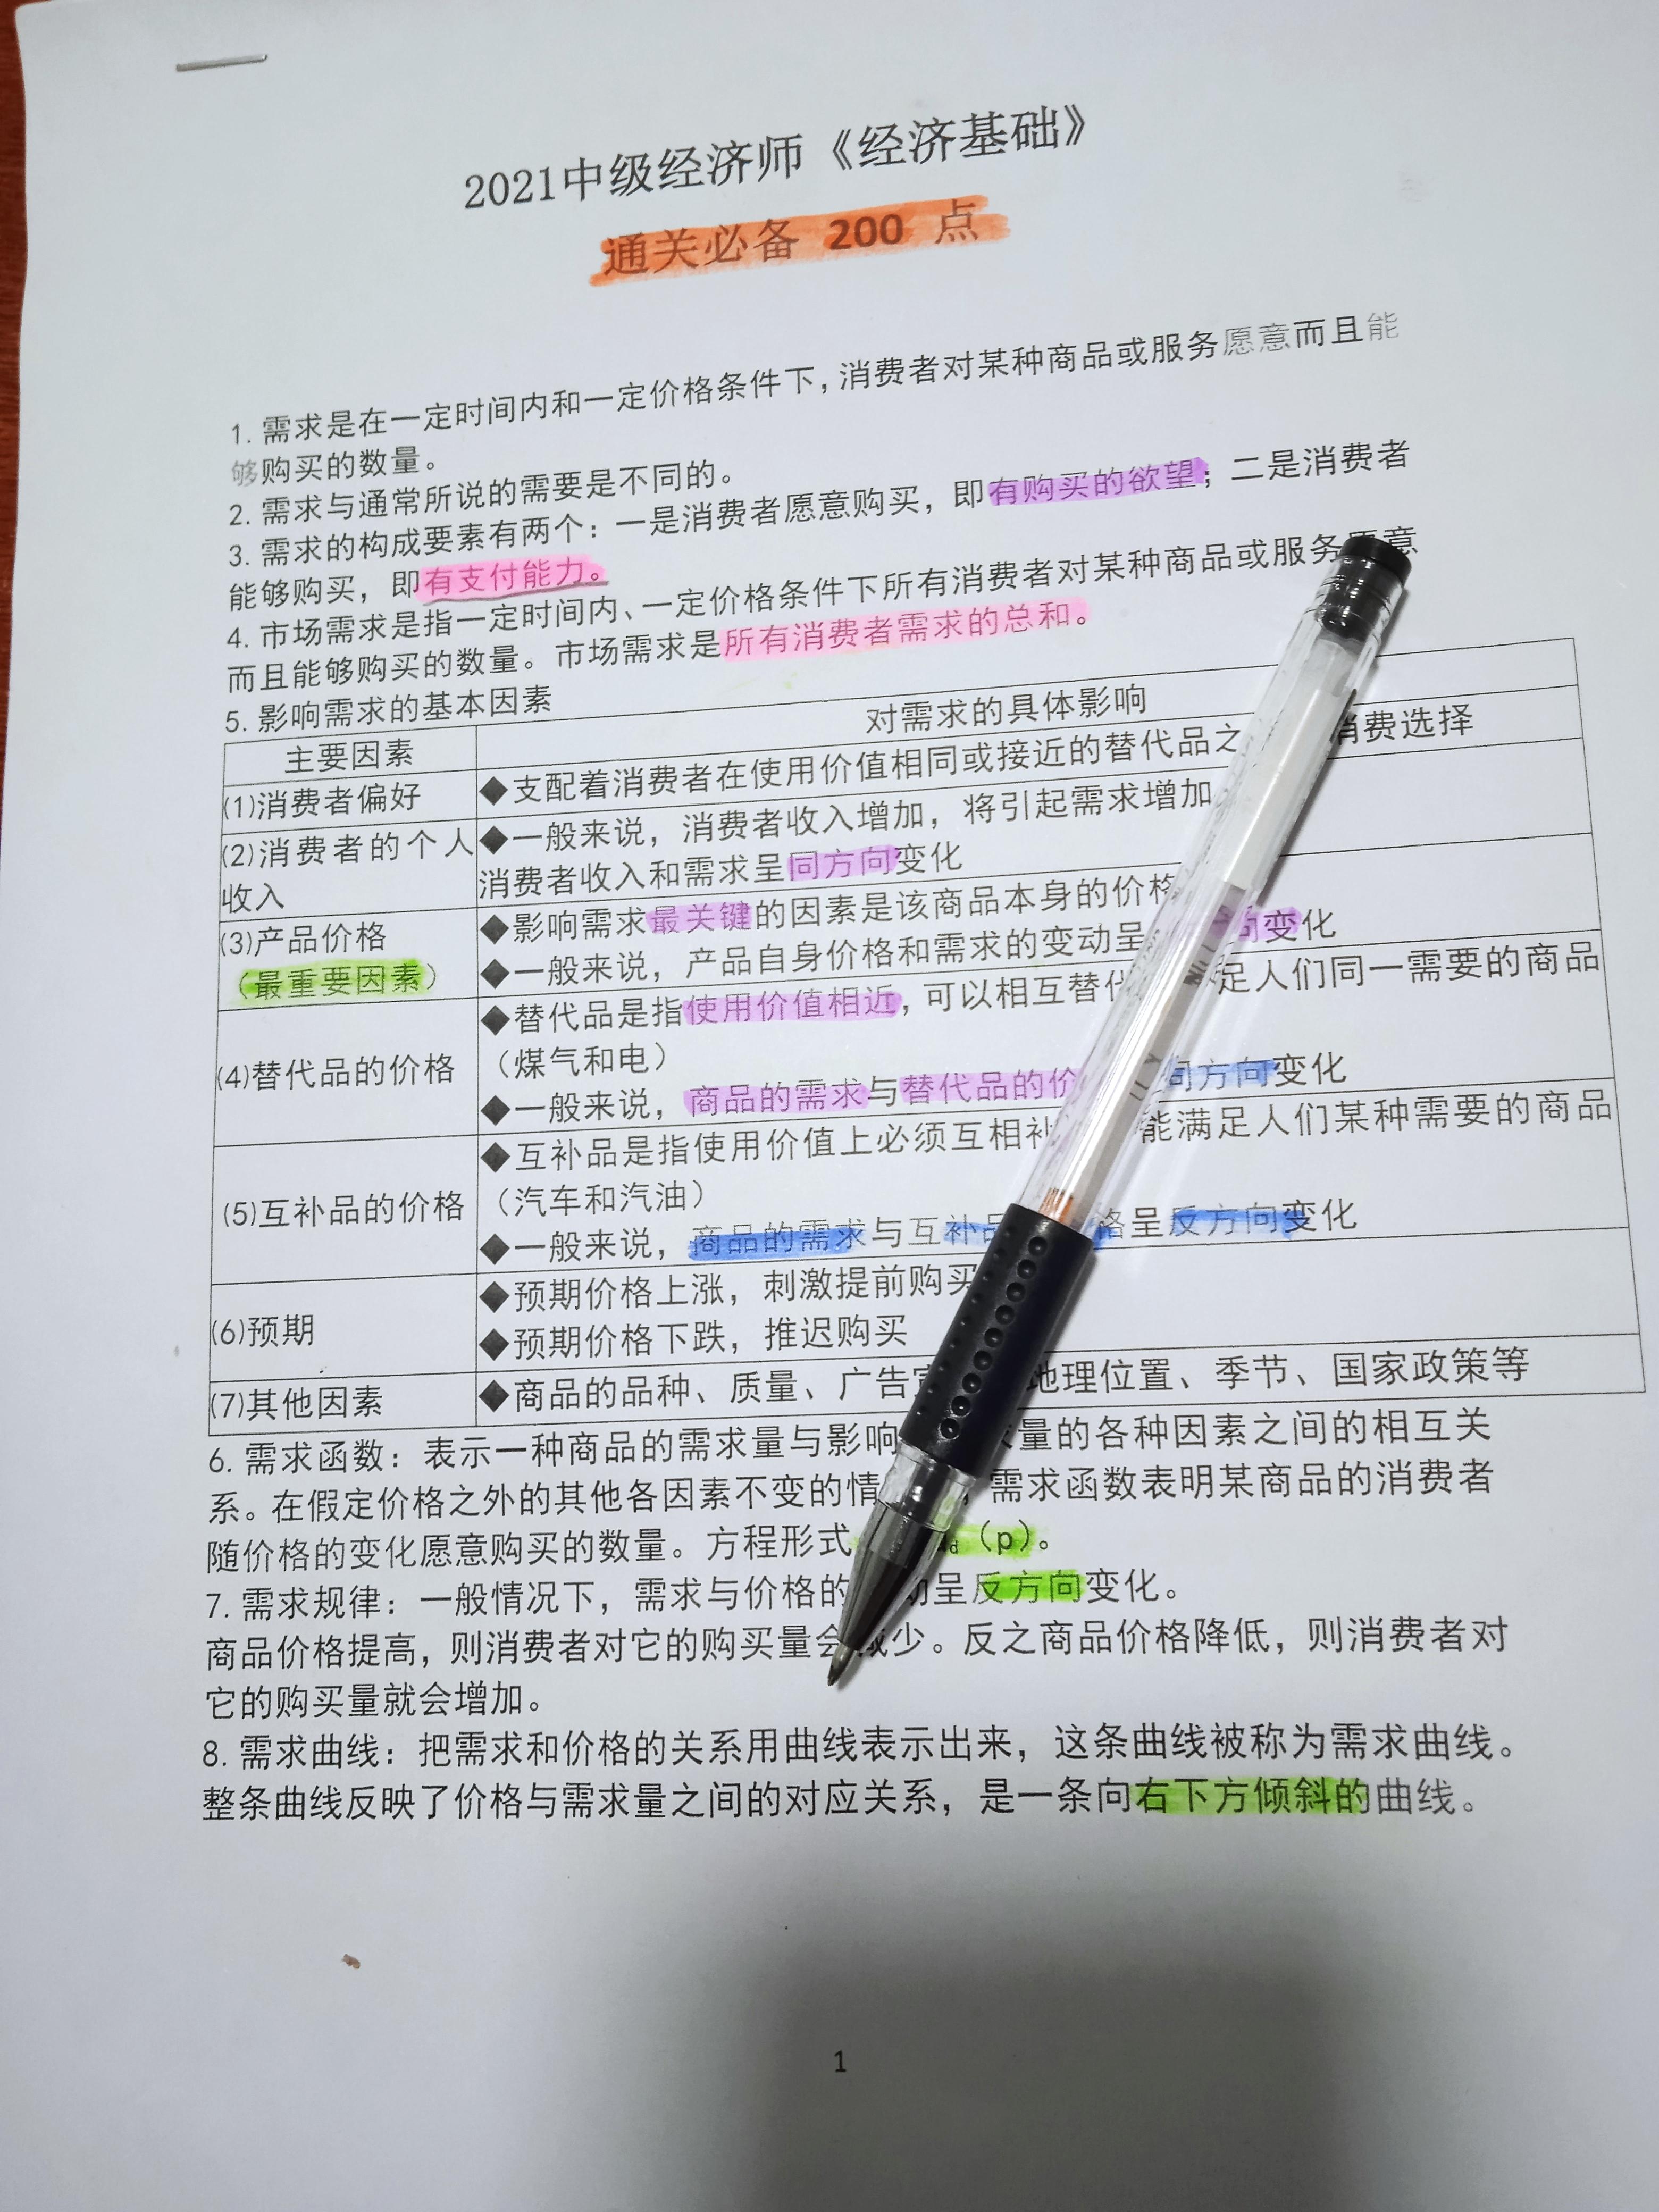 2021中级经济师《经济基础》
通关必备 200 点
1.需求是在一定时间内和一定价格条件下，消费者对某种商品或服务愿意而且能
够购买的数量。
2.需求与通常所说的需要是不同的。
3.需求的构成要素有两个：一是消费者愿意购买，即有购买的欲望；二是消费者
能够购买，即有支付能力。
4.市场需求是指一定时间内、一定价格条件下所有消费者对某种商品或服务愿意
而且能够购买的数量。市场需求是所有消费者需求的总和。
5.影响需求的基本因素
主要因素 对需求的具体影响
(1)消费者偏好 ◆支配着消费者在使用价值相同或接近的替代品之 消费选择
(2)消费者的个人收入 ◆一般来说，消费者收入增加，将引起需求增加
消费者收入和需求呈同方向变化
(3)产品价格 ◆影响需求最关键的因素是该商品本身的价格
（最重要因素） ◆一般来说，产品自身价格和需求的变动呈 向变化
◆替代品是指使用价值相近，可以相互替代 足人们同一需要的商品
（煤气和电）
(4)替代品的价格 ◆一般来说，商品的需求与替代品的价 同方向变化
◆互补品是指使用价值上必须互相补 能满足人们某种需要的商品
（汽车和汽油）
(5)互补品的价格 ◆一般来说，商品的需求与互补品 格呈反方向变化
◆预期价格上涨，刺激提前购买
(6)预期 ◆预期价格下跌，推迟购买
(7)其他因素 ◆商品的品种、质量、广告 地理位置、季节、国家政策等
6.需求函数：表示一种商品的需求量与影响 量的各种因素之间的相互关
系。在假定价格之外的其他各因素不变的情 ，需求函数表明某商品的消费者
随价格的变化愿意购买的数量。方程形式 d（p）。
7.需求规律：一般情况下，需求与价格的 动呈反方向变化。
商品价格提高，则消费者对它的购买量会减少。反之商品价格降低，则消费者对
它的购买量就会增加。
8.需求曲线：把需求和价格的关系用曲线表示出来，这条曲线被称为需求曲线。
整条曲线反映了价格与需求量之间的对应关系，是一条向右下方倾斜的曲线。
1